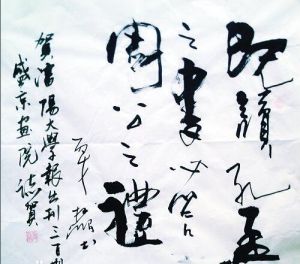 既讀孔孟
之書必
周公之禮
賀瀋陽大學報出刊三百期
盛京畫院 誌賀